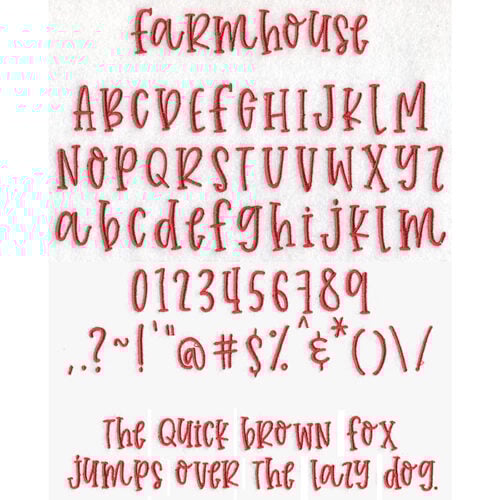 farmhouse
ABCDEFGHIJKLM
NOPQRSTUVWXYZ
abcdefghijklm
0123456789
,.?~!'"@#$%^&*()\/
The quick brown fox
jumps over the lazy dog.